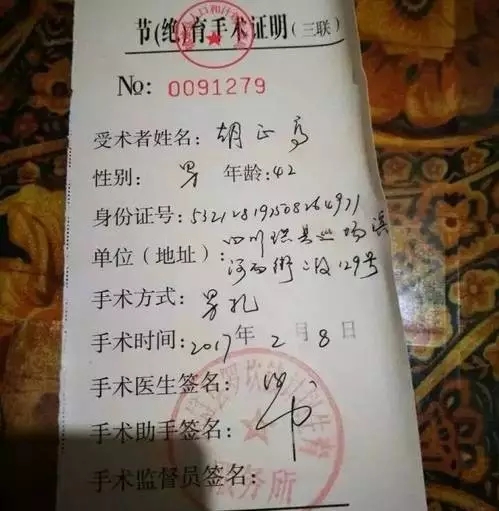 节(绝)育手术证明(三联)
No: 0091279
受术者姓名: 胡正高
性别: 男 年龄: 42
身份证号: 532128197508264971
单位(地址): 四川珙县巡场滨
河西街二段129号
手术方式: 男扎
手术时间: 2017年 2月 8日
手术医生签名:
手术助手签名:
手术监督员签名:
服务所